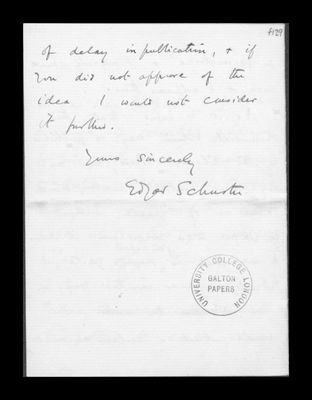 f129
of delay in publication, & if
you did not approve of the
idea I would not consider
it further.
Yours sincerely
Edgar Schuster
UNIVERSITY COLLEGE LONDON
GALTON
PAPERS